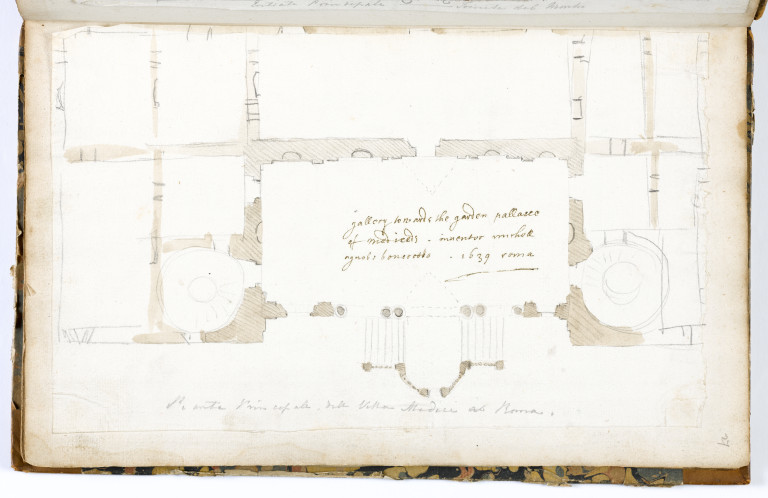 Entrata Principale
gallery towards the garden pallaece
of medicis . inventor michell
agnolo bonorotto . 1639 roma
Pianta Principale della Villa Medici at Roma.